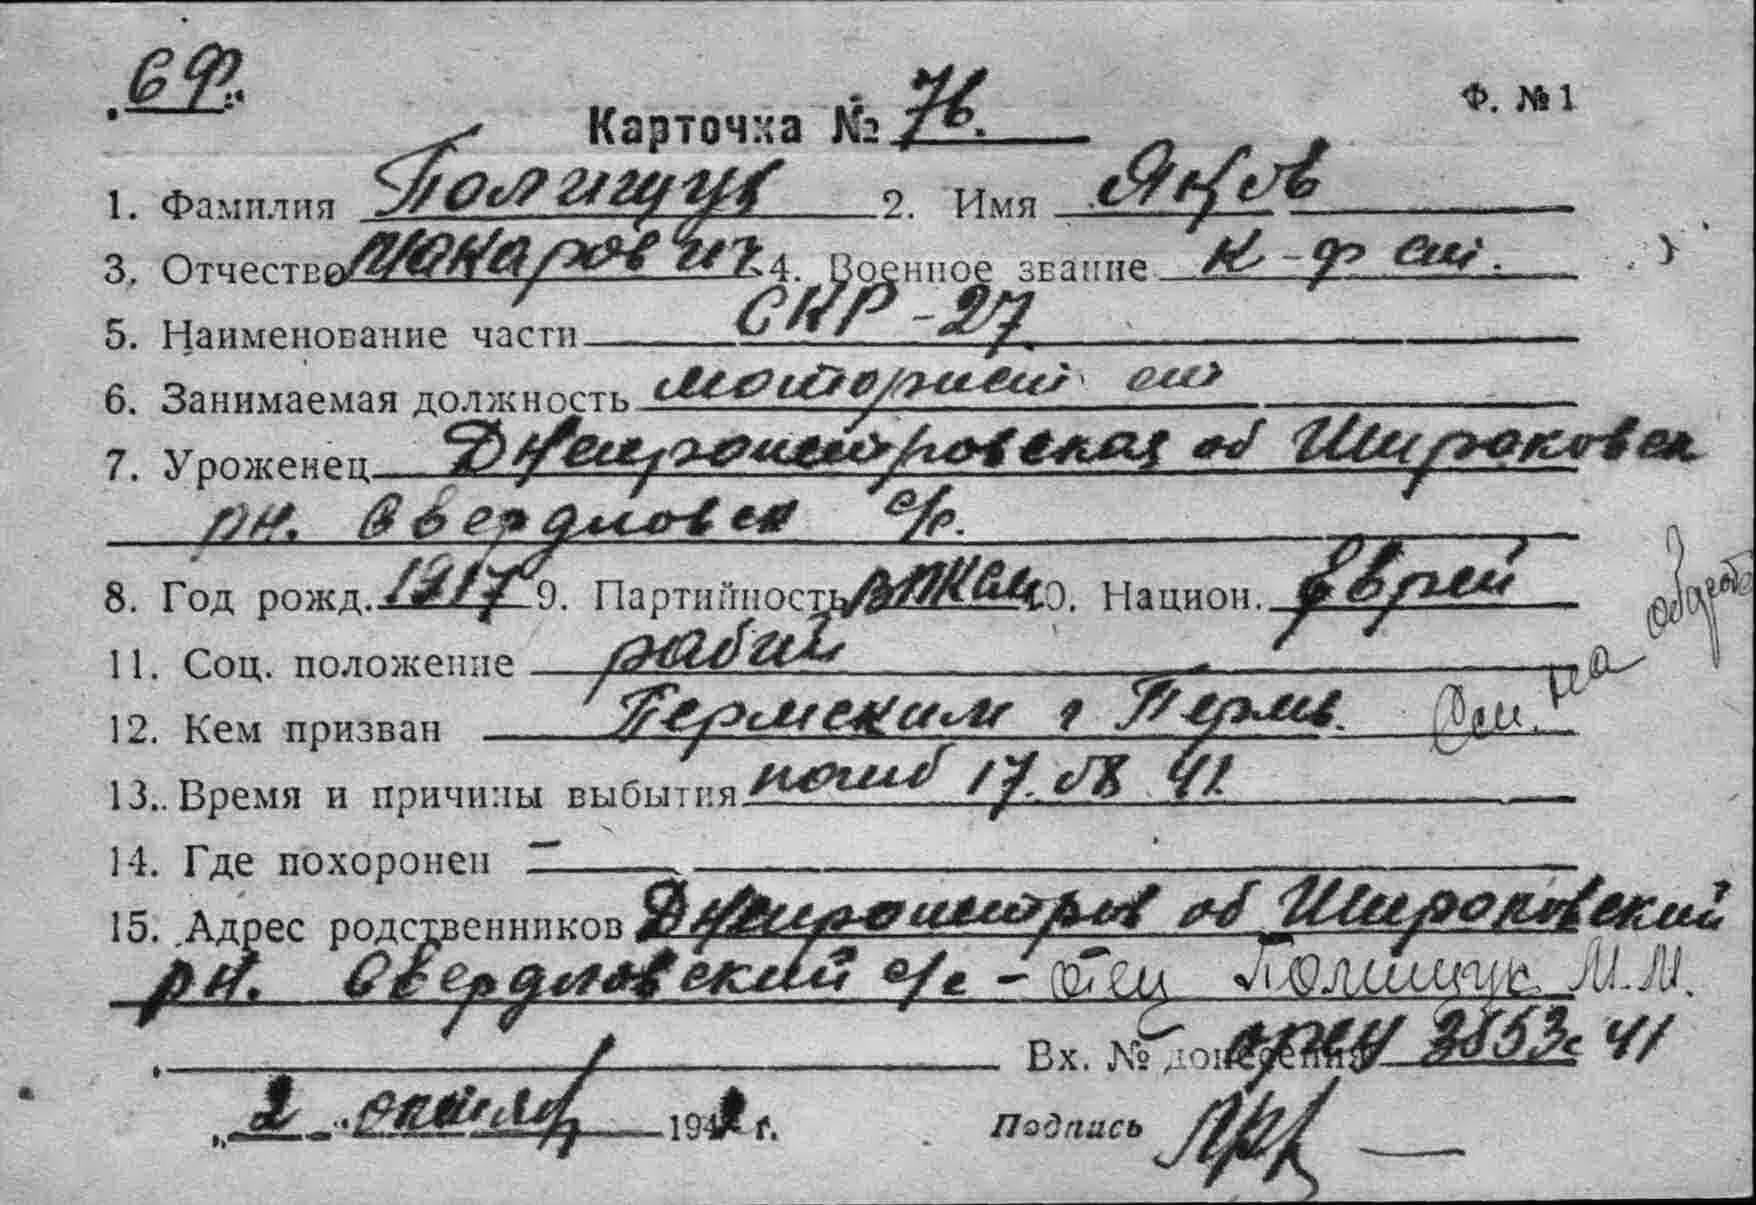 СФ.
Ф. №1
Карточка № 76.
1. Фамилия Полищук 2. Имя Яков
3. Отчество Макарович 4. Военное звание к-ф ст.
5. Наименование части СКР-27
6. Занимаемая должность моторист ст
7. Уроженец Днепропетровская об Широковск
рн. Свердловск с/с.
8. Год рожд. 1917 9. Партийность ВЛКСМ 10. Национ. Еврей
11. Соц. положение рабчий
12. Кем призван Пермским г Пермь.
См. на обороте
13. Время и причины выбытия погиб 17.08 41.
14. Где похоронен —
15. Адрес родственников Днепропетров об Широковский
рн. Свердловский с/с - отец Полищук М.М.
Вх. № донесения 3553с 41
„2" октября 194 г. Подпись